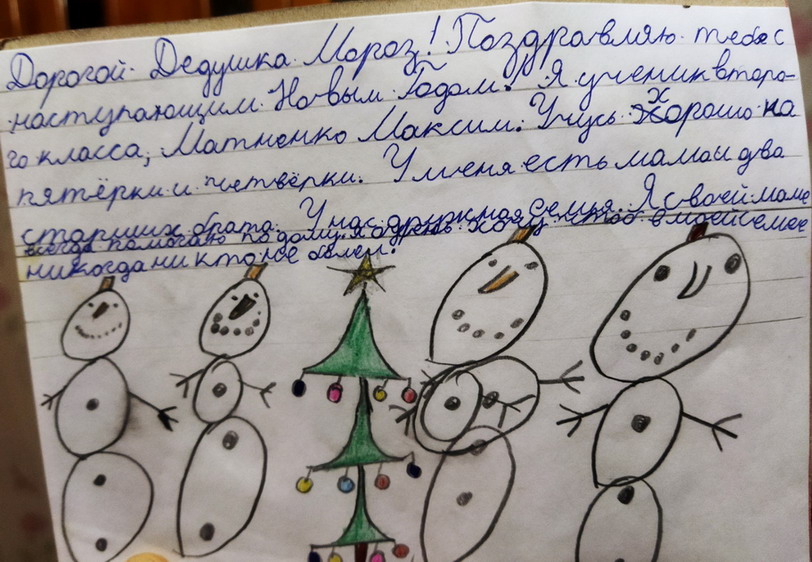 Дорогой Дедушка Мороз! Поздравляю тебя с
наступающим Новым Годом. Я ученик второ-
го класса, Матненко Максим. Учусь хорошо на
пятёрки и четвёрки. У меня есть мама и два
старших брата. У нас дружная семья. Я своей маме
всегда помогаю по дому. Я очень хочу чтоб в моей семье
никогда никто не болел.